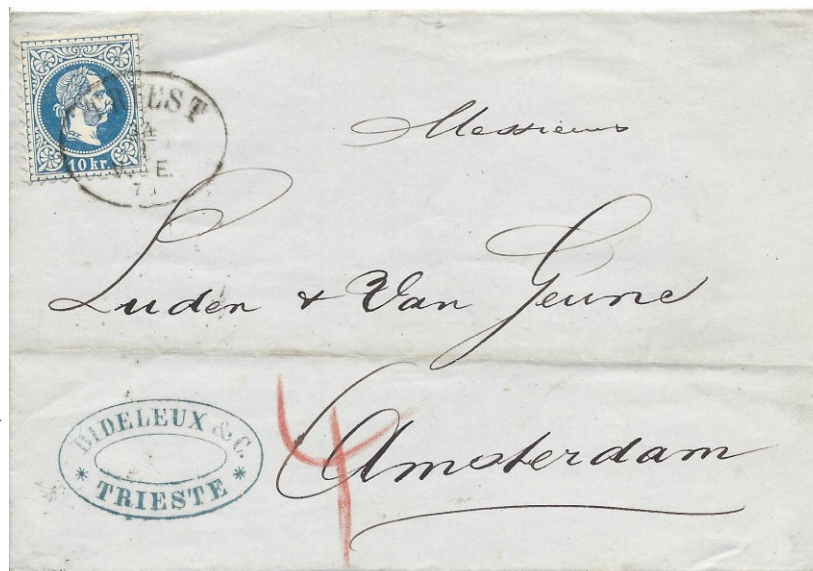 10 kr.
TRIEST
Messieurs
Luden & Van Geune
Amsterdam
4
BIDELEUX & C.
* TRIESTE *